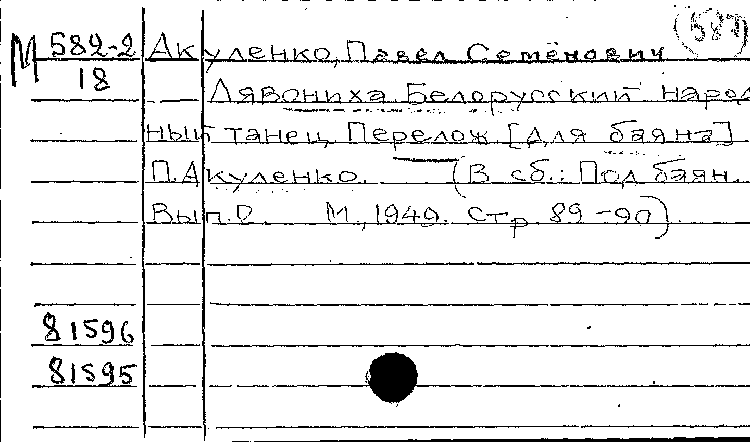 (587)
М 582-2 Акуленко, Павел Семёнович
18
Лявониха Белорусский народ
ный танец Перелож. [для баяна]
П. Акуленко. (В сб.: Под баян.
Вып. 2. М., 1949. Стр. 89-90).
81596
81595